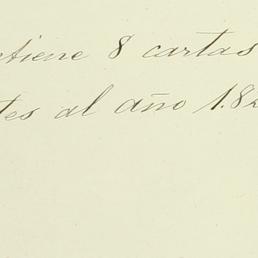 ntiene 8 cartas
tes al año 1.8